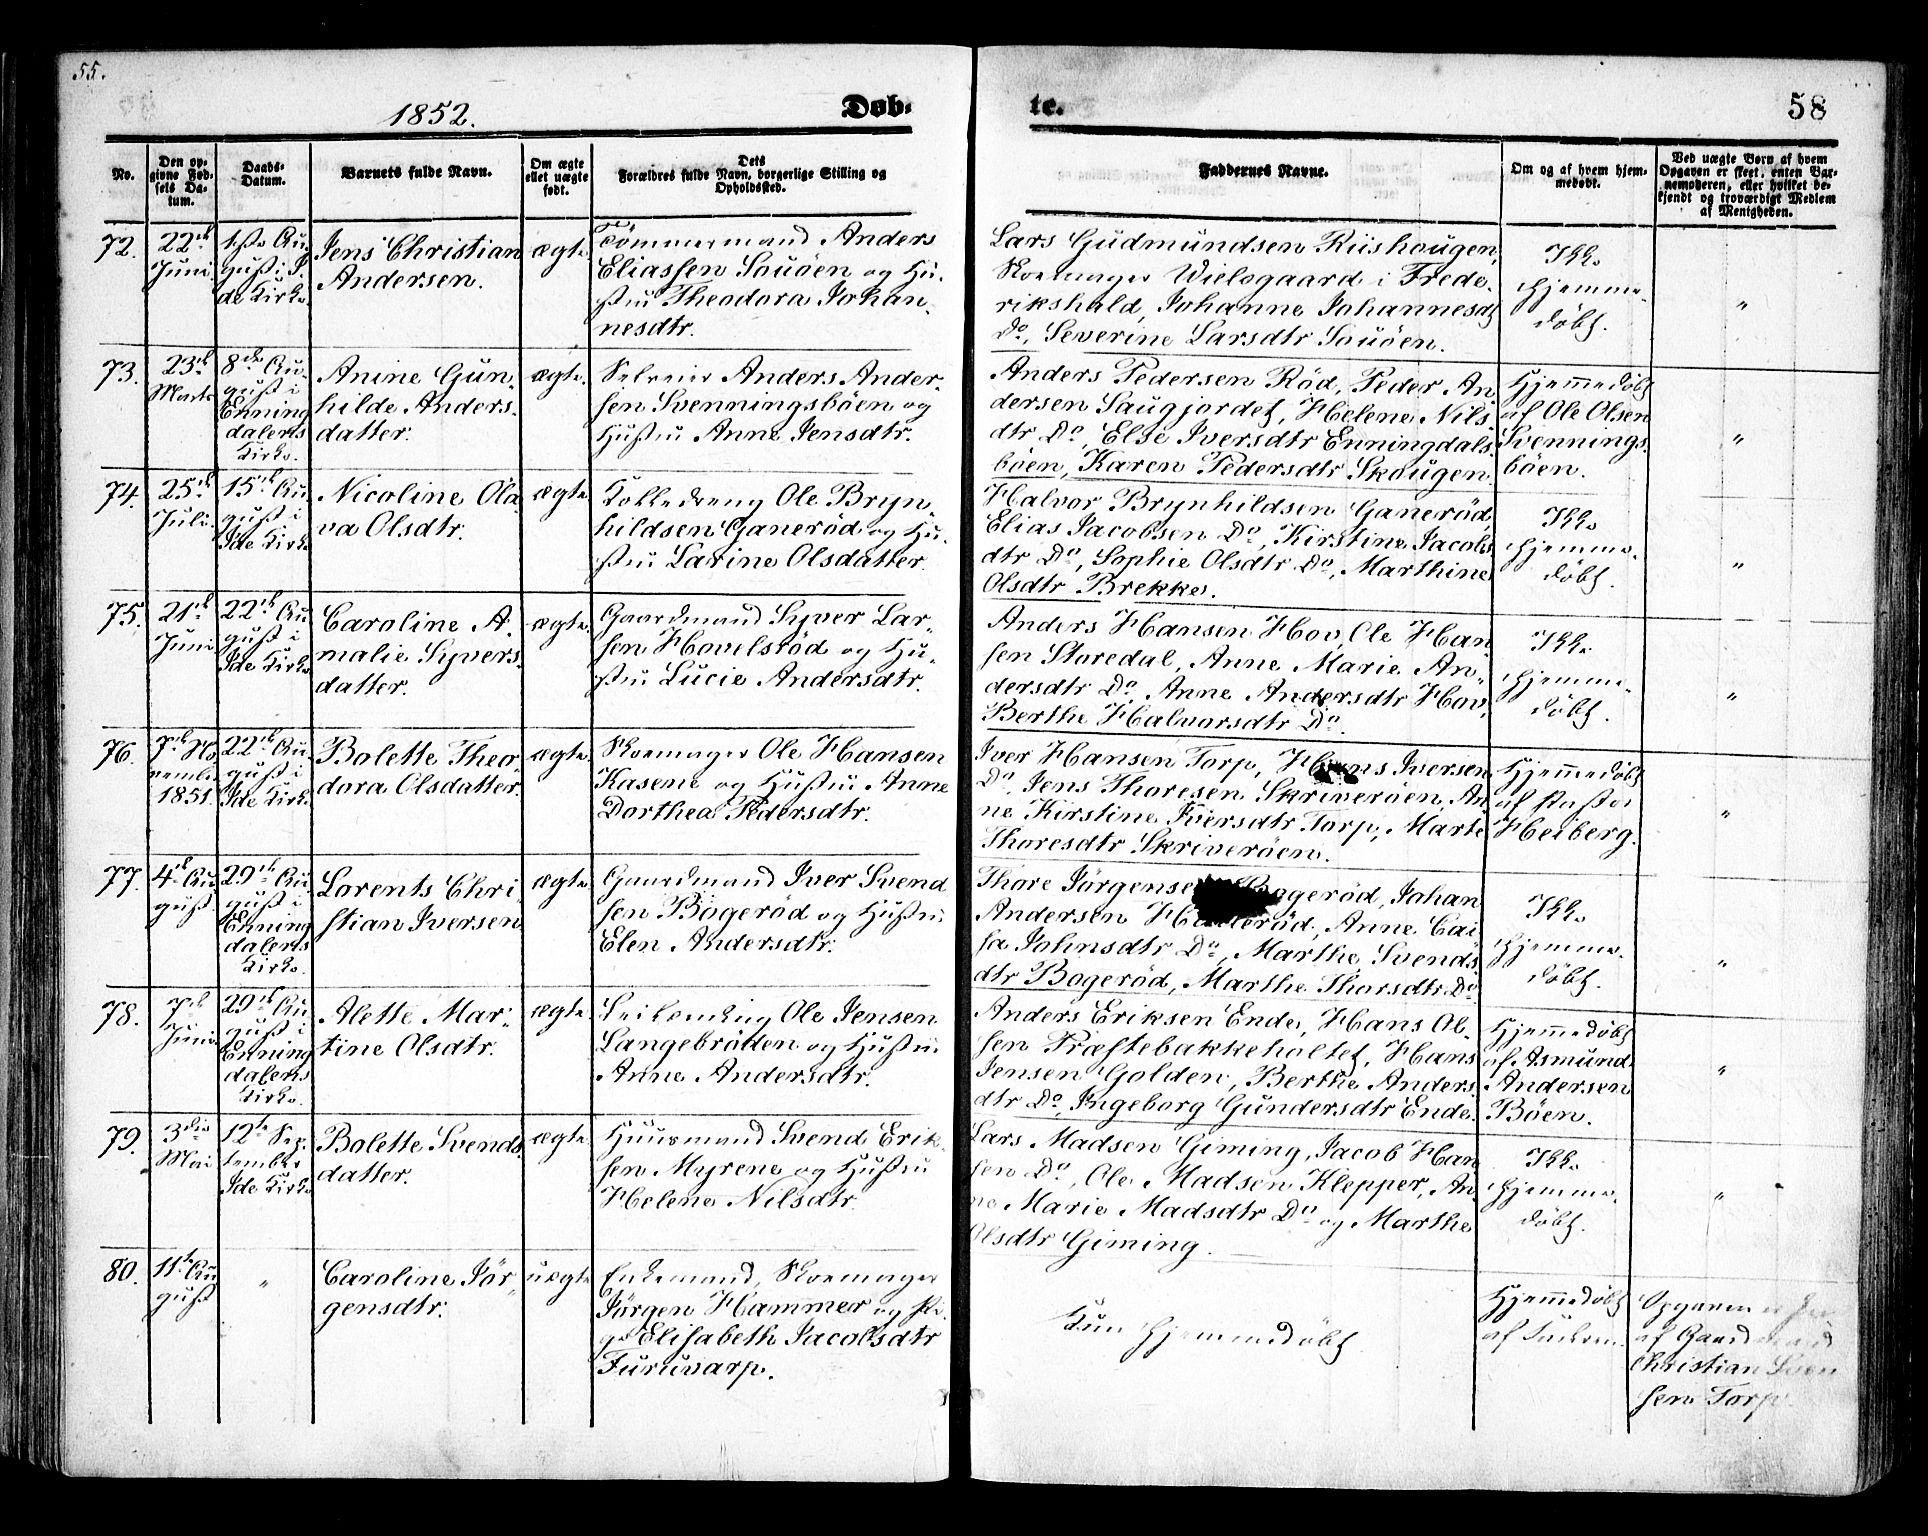 55.
1852.
Døb-
te.
58
No.
Den op-
givne Fød-
sels Da-
tum.
Daabs-
Datum.
Barnets fulde Navn.
Om ægte
eller uægte
født.
Dets
Forældres fulde Navn, borgerlige Stilling og
Opholdssted.
Faddernes Navne.
Om og af hvem hjem-
medøbt.
Ved uægte Børn af hvem
Opgaven er skeet, enten Bar-
nemoderen, eller hvilket be-
kjendt og troværdigt Medlem
af Menigheden.
72.
22de
Juni
1ste Au-
gust i I-
de Kirke
Jens Christian
Andersen.
ægte
Tømmermand Anders
Eliassen Souöen og Hu-
stru Theodora Johan-
nesdtr.
Lars Gudmundsen Riishougen,
Skomager Wielsgaard i Frede-
rikshald, Johanne Johannesdt
Do, Severine Larsdtr Souöen.
Ikke
hjemme-
døbt.
"
73.
23de
Marts
8de Au-
gust i
Enning
dalens
Kirke.
Anine Gun-
hilde Anders-
datter.
ægte.
Selveier Anders Ander-
sen Svenningsböen og
Hustru Anne Jensdtr.
Anders Pedersen Röd, Peder An
dersen Saugjordet, Helene Nils-
dtr Do, Else Iversdtr Enningdals-
böen, Karen Pedersdtr Skougen.
Hjemmedøbt
af Ole Olsen
Svennings-
böen.
"
74.
25de
Juli.
15de Au
gust i
Ide Kirke
Nicoline Ola
va Olsdtr.
ægte.
Kokkedreng Ole Bryn-
hildsen Ganeröd og Hu-
stru Larine Olsdatter.
Halvor Brynhildsen Ganeröd,
Elias Jacobsen Do, Kirstine Jacobs
dtr Do, Sophie Olsdtr Do, Marthine
Olsdtr Brekke.
Ikke
hjemme-
døbt.
"
75.
21de
Juni
22de Au
gust i
Ide Kirke
Caroline A-
malie Syvers-
datter.
ægte.
Gaardmand Syver Lar-
sen Hovelsröd og Hu-
stru Lucie Andersdtr.
Anders Hansen Hov, Ole Han
sen Storedal, Anne Marie An-
dersdtr Do, Anne Andersdtr Hov,
Berthe Halvorsdtr Do.
Ikke
hjemme-
døbt.
"
76.
7de No
vember
1851.
22de Au
gust i
Ide Kirke
Bolette Theo
dora Olsdatter.
ægte.
Skomager Ole Hansen
Kasene og Hustru Anne
Dorthea Pedersdtr.
Iver Hansen Torp, Hans Iversen
Do, Jens Thoresen Skriveröen, An
ne Kirstine Iversdtr Torp, Marte
Thoresdtr Skriveröen.
Hjemmedøbt
af Pastor
Heiberg.
"
77.
4de Au
gust.
29de Au
gust i
Enning
dalens
Kirke.
Lorents Chri
stian Iversen
ægte
Gaardmand Iver Svend
sen Bogeröd og Hustru
Elen Andersdtr.
Thore Jörgensen Bogeröd, Johan
Andersen Anne Cai
sa Johnsdtr Do, Marthe Svends
dtr Bogeröd, Marthe Thorsdtr Do
Ikke
hjemme-
døbt.
"
78.
7de
Juni
29de Au
gust i
Enning
dalens
Kirke.
Alette Mar-
tine Olsdtr.
ægte
Ole Jensen
Langebråtten og Hustru
Anne Andersdtr.
Anders Eriksen Ende, Hans Ol-
sen Præstebakkeholtet, Hans
Jensen Golden, Berthe Anders-
dtr Do, Ingeborg Gundersdtr Ende.
Hjemmedøbt
af Asmund
Andersen
Böen.
"
79.
3die
Mai
12te Sep-
tember
Ide Kirke
Bolette Svends-
datter.
ægte
Huusmand Svend Erik-
sen Myrene og Hustru
Helene Nilsdtr.
Lars Madsen Giming, Jacob Han
sen Do, Ole Madsen Klepper, An-
ne Marie Madsdtr Do og Marthe
Olsdtr Giming.
Ikke
hjemme-
døbt.
"
80.
11te Au
gust
"
Caroline Jör-
gensdtr.
uægte
Enkemand, Skomager
Jörgen Hammer og Pi-
ge Elisabeth Jacobsdtr
Furuvarp.
Kun hjemmedøbt
Hjemmedøbt
af
Opgaven er
af Gaardmand
Christian Sven
sen Torp.